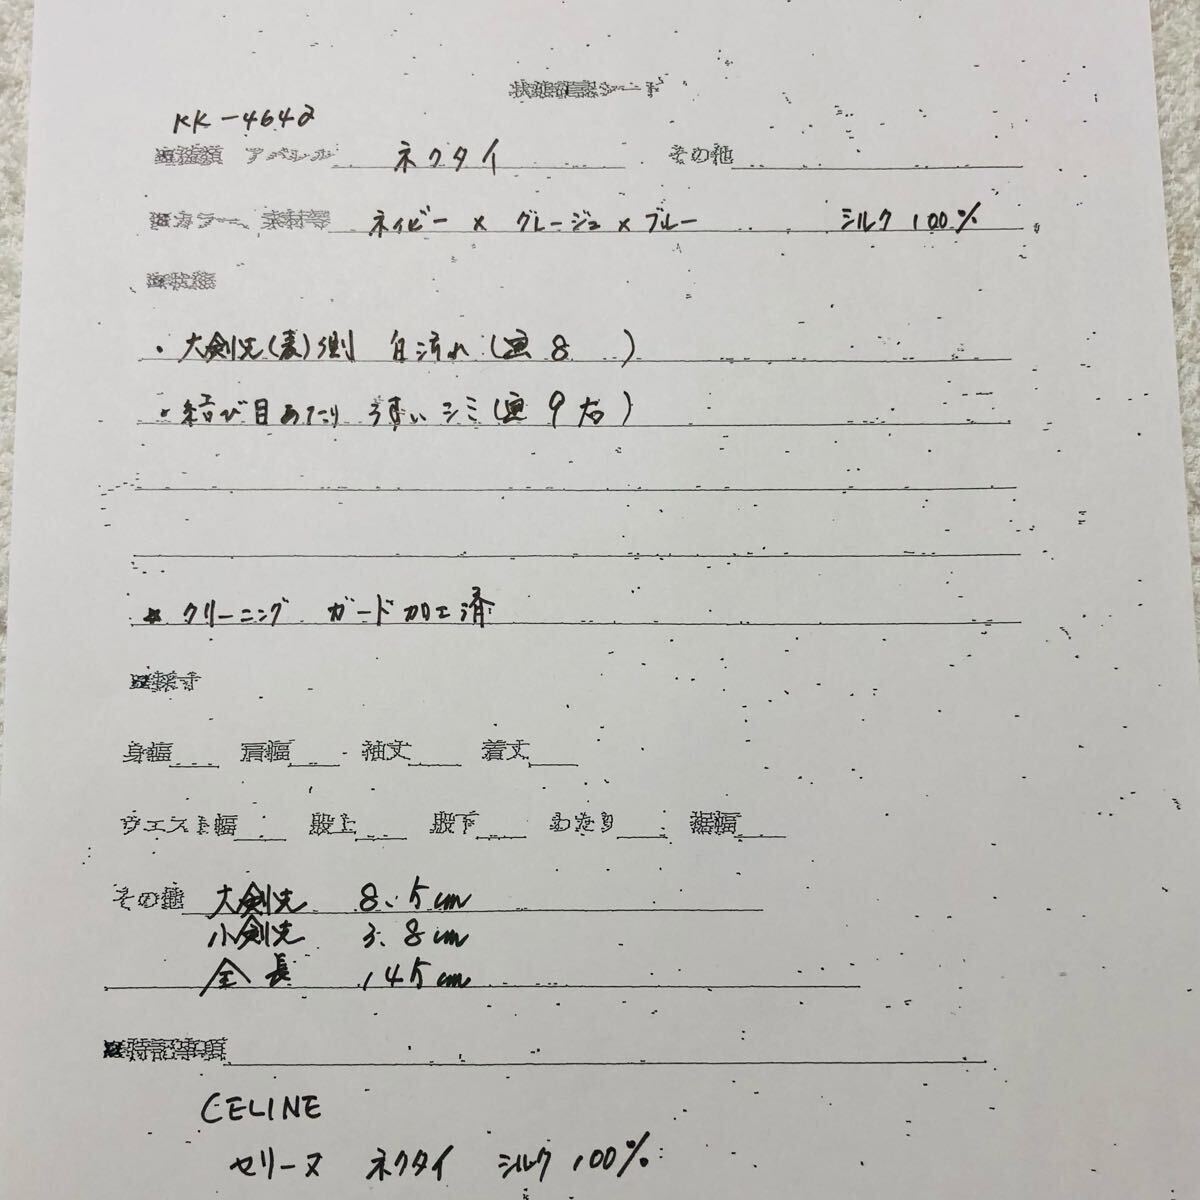 状態確認シート
KK-4642
種類 アパレル ネクタイ その他
カラー、素材等 ネイビー × グレージュ × ブルー シルク 100%
状態
・大剣先(表)側 白流れ(画 8 )
・結び目あたり うすいシミ(画 9 右)
★ クリーニング ガード加工済
採寸
身幅 肩幅 袖丈 着丈
ウエスト幅 股上 股下 わたり 裾幅
その他 大剣先 8.5cm
小剣先 3.8cm
全長 145cm
特記事項
CELINE
セリーヌ ネクタイ シルク 100%